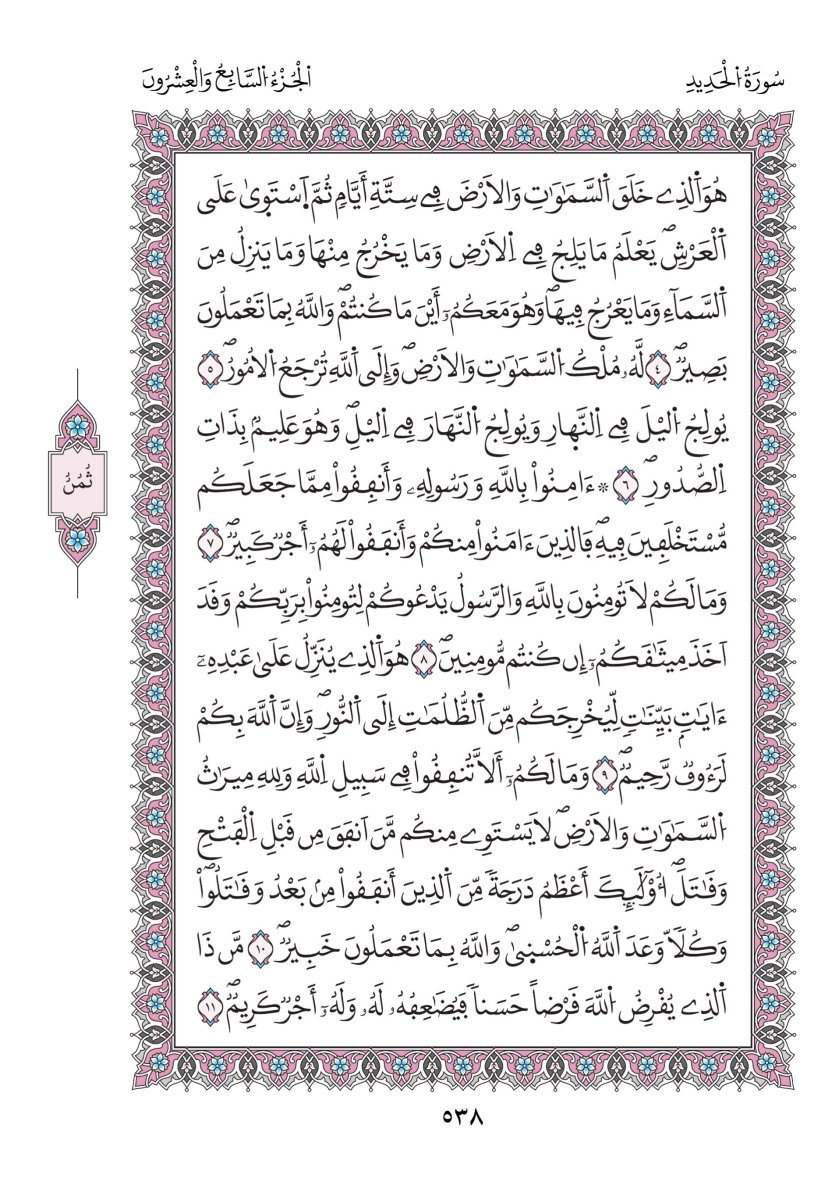 سُورَةُ اُلْحَدِيدِ
اَلْجُزْءُ اُلسَّابِعُ وَالْعِشْرُونَ
هُوَ اَلذِے خَلَقَ اَلسَّمَٰوَٰتِ وَالَارْضَ فِے سِتَّةِ أَيَّامٖ ثُمَّ اَسْتَوۭيٰ عَلَي
اَلْعَرْشِۖ يَعْلَمُ مَا يَلِجُ فِے اِلَارْضِ وَمَا يَخْرُجُ مِنْهَا وَمَا يَنزِلُ مِنَ
اَلسَّمَآءِ وَمَا يَعْرُجُ فِيهَاۖ وَهُوَ مَعَكُمُۥٓ أَيْنَ مَا كُنتُمْۖ وَاللَّهُ بِمَا تَعْمَلُونَ
بَصِيرٞۖ ٤ لَّهُۥ مُلْكُ اُلسَّمَٰوَٰتِ وَالَارْضِۖ وَإِلَي اَللَّهِ تُرْجَعُ اُلُامُورُۖ ٥
يُولِجُ اُليْلَ فِے اِلنَّهٰارِ وَيُولِجُ اُلنَّهَارَ فِے اِليْلِۖ وَهُوَ عَلِيمُۢ بِذَاتِ
اِلصُّدُورِۖ ٦ ۞ ءَامِنُواْ بِاللَّهِ وَرَسُولِهِۦ وَأَنفِقُواْ مِمَّا جَعَلَكُم
مُّسْتَخْلَفِينَ فِيهِۖ فَالذِينَ ءَامَنُواْ مِنكُمْ وَأَنفَقُواْ لَهُمُۥٓ أَجْرٞ كَبِيرٞۖ ٧
وَمَا لَكُمْ لَا تُومِنُونَ بِاللَّهِ وَالرَّسُولُ يَدْعُوكُمْ لِتُومِنُواْ بِرَبِّكُمْ وَقَدَ
اَخَذَ مِيثَٰقَكُمُۥٓ إِن كُنتُم مُّومِنِينَۖ ٨ هُوَ اَلذِے يُنَزِّلُ عَلَيٰ عَبْدِهِۦٓ
ءَايَٰتِۢ بَيِّنَٰتٖ لِّيُخْرِجَكُم مِّنَ اَلظُّلُمَٰتِ إِلَي اَلنُّورِۖ وَإِنَّ اَللَّهَ بِكُمْ
لَرَءُوفٞ رَّحِيمٞۖ ٩ وَمَا لَكُمُۥٓ أَلَّا تُنفِقُواْ فِے سَبِيلِ اِللَّهِ وَلِلهِ مِيرَٰثُ
اُلسَّمَٰوَٰتِ وَالَارْضِۖ لَا يَسْتَوِے مِنكُم مَّنَ اَنفَقَ مِن قَبْلِ اِلْفَتْحِ
وَقَٰتَلَۖ أُوْلَٰٓئِكَ أَعْظَمُ دَرَجَةٗ مِّنَ اَلذِينَ أَنفَقُواْ مِنۢ بَعْدُ وَقَٰتَلُواْۖ
وَكُلّاٗ وَعَدَ اَللَّهُ اُلْحُسْنۭيٰۖ وَاللَّهُ بِمَا تَعْمَلُونَ خَبِيرٞۖ ١٠ مَّن ذَا
اَلذِے يُقْرِضُ اُللَّهَ قَرْضاً حَسَناٗ فَيُضَٰعِفُهُۥ لَهُۥ وَلَهُۥٓ أَجْرٞ كَرِيمٞۖ ١١
ثُمُنُ
٥٣٨